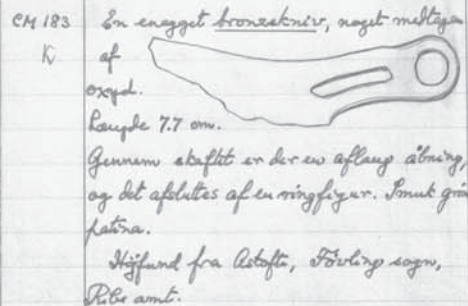 CM 183 En enægget bronzekniv, noget medtagen
K af
oxyd.
Længde 7.7 cm.
Gennem skæftet er der en aflang åbning,
og det afsluttes af en ringfigur. Smuk grøn
patina.
Højfund fra Astofte, Føvling sogn,
Ribe amt.